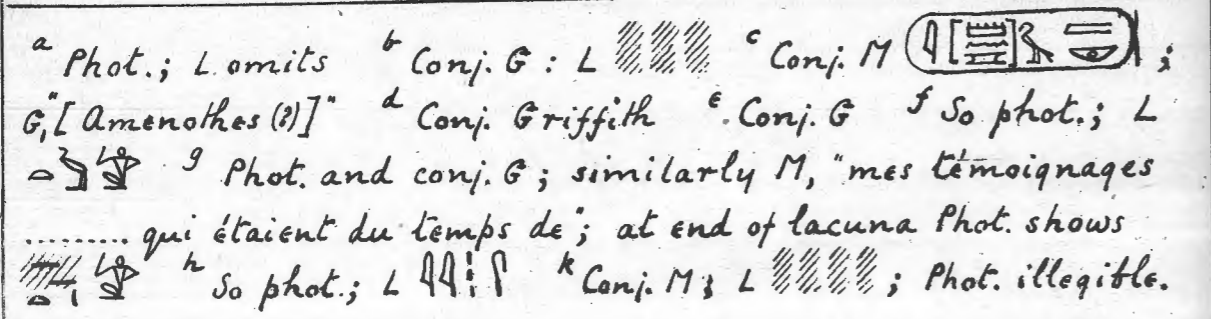 a Phot.; L omits b Conj. G : L c Conj. M ;
G, "[Amenothes (?)]" d Conj. Griffith e Conj. G f So phot.; L
g Phot. and conj. G ; similarly M, "mes témoignages
......... qui étaient du temps de"; at end of lacuna Phot. shows
h So phot.; L k Conj. M; L ; Phot. illegible.